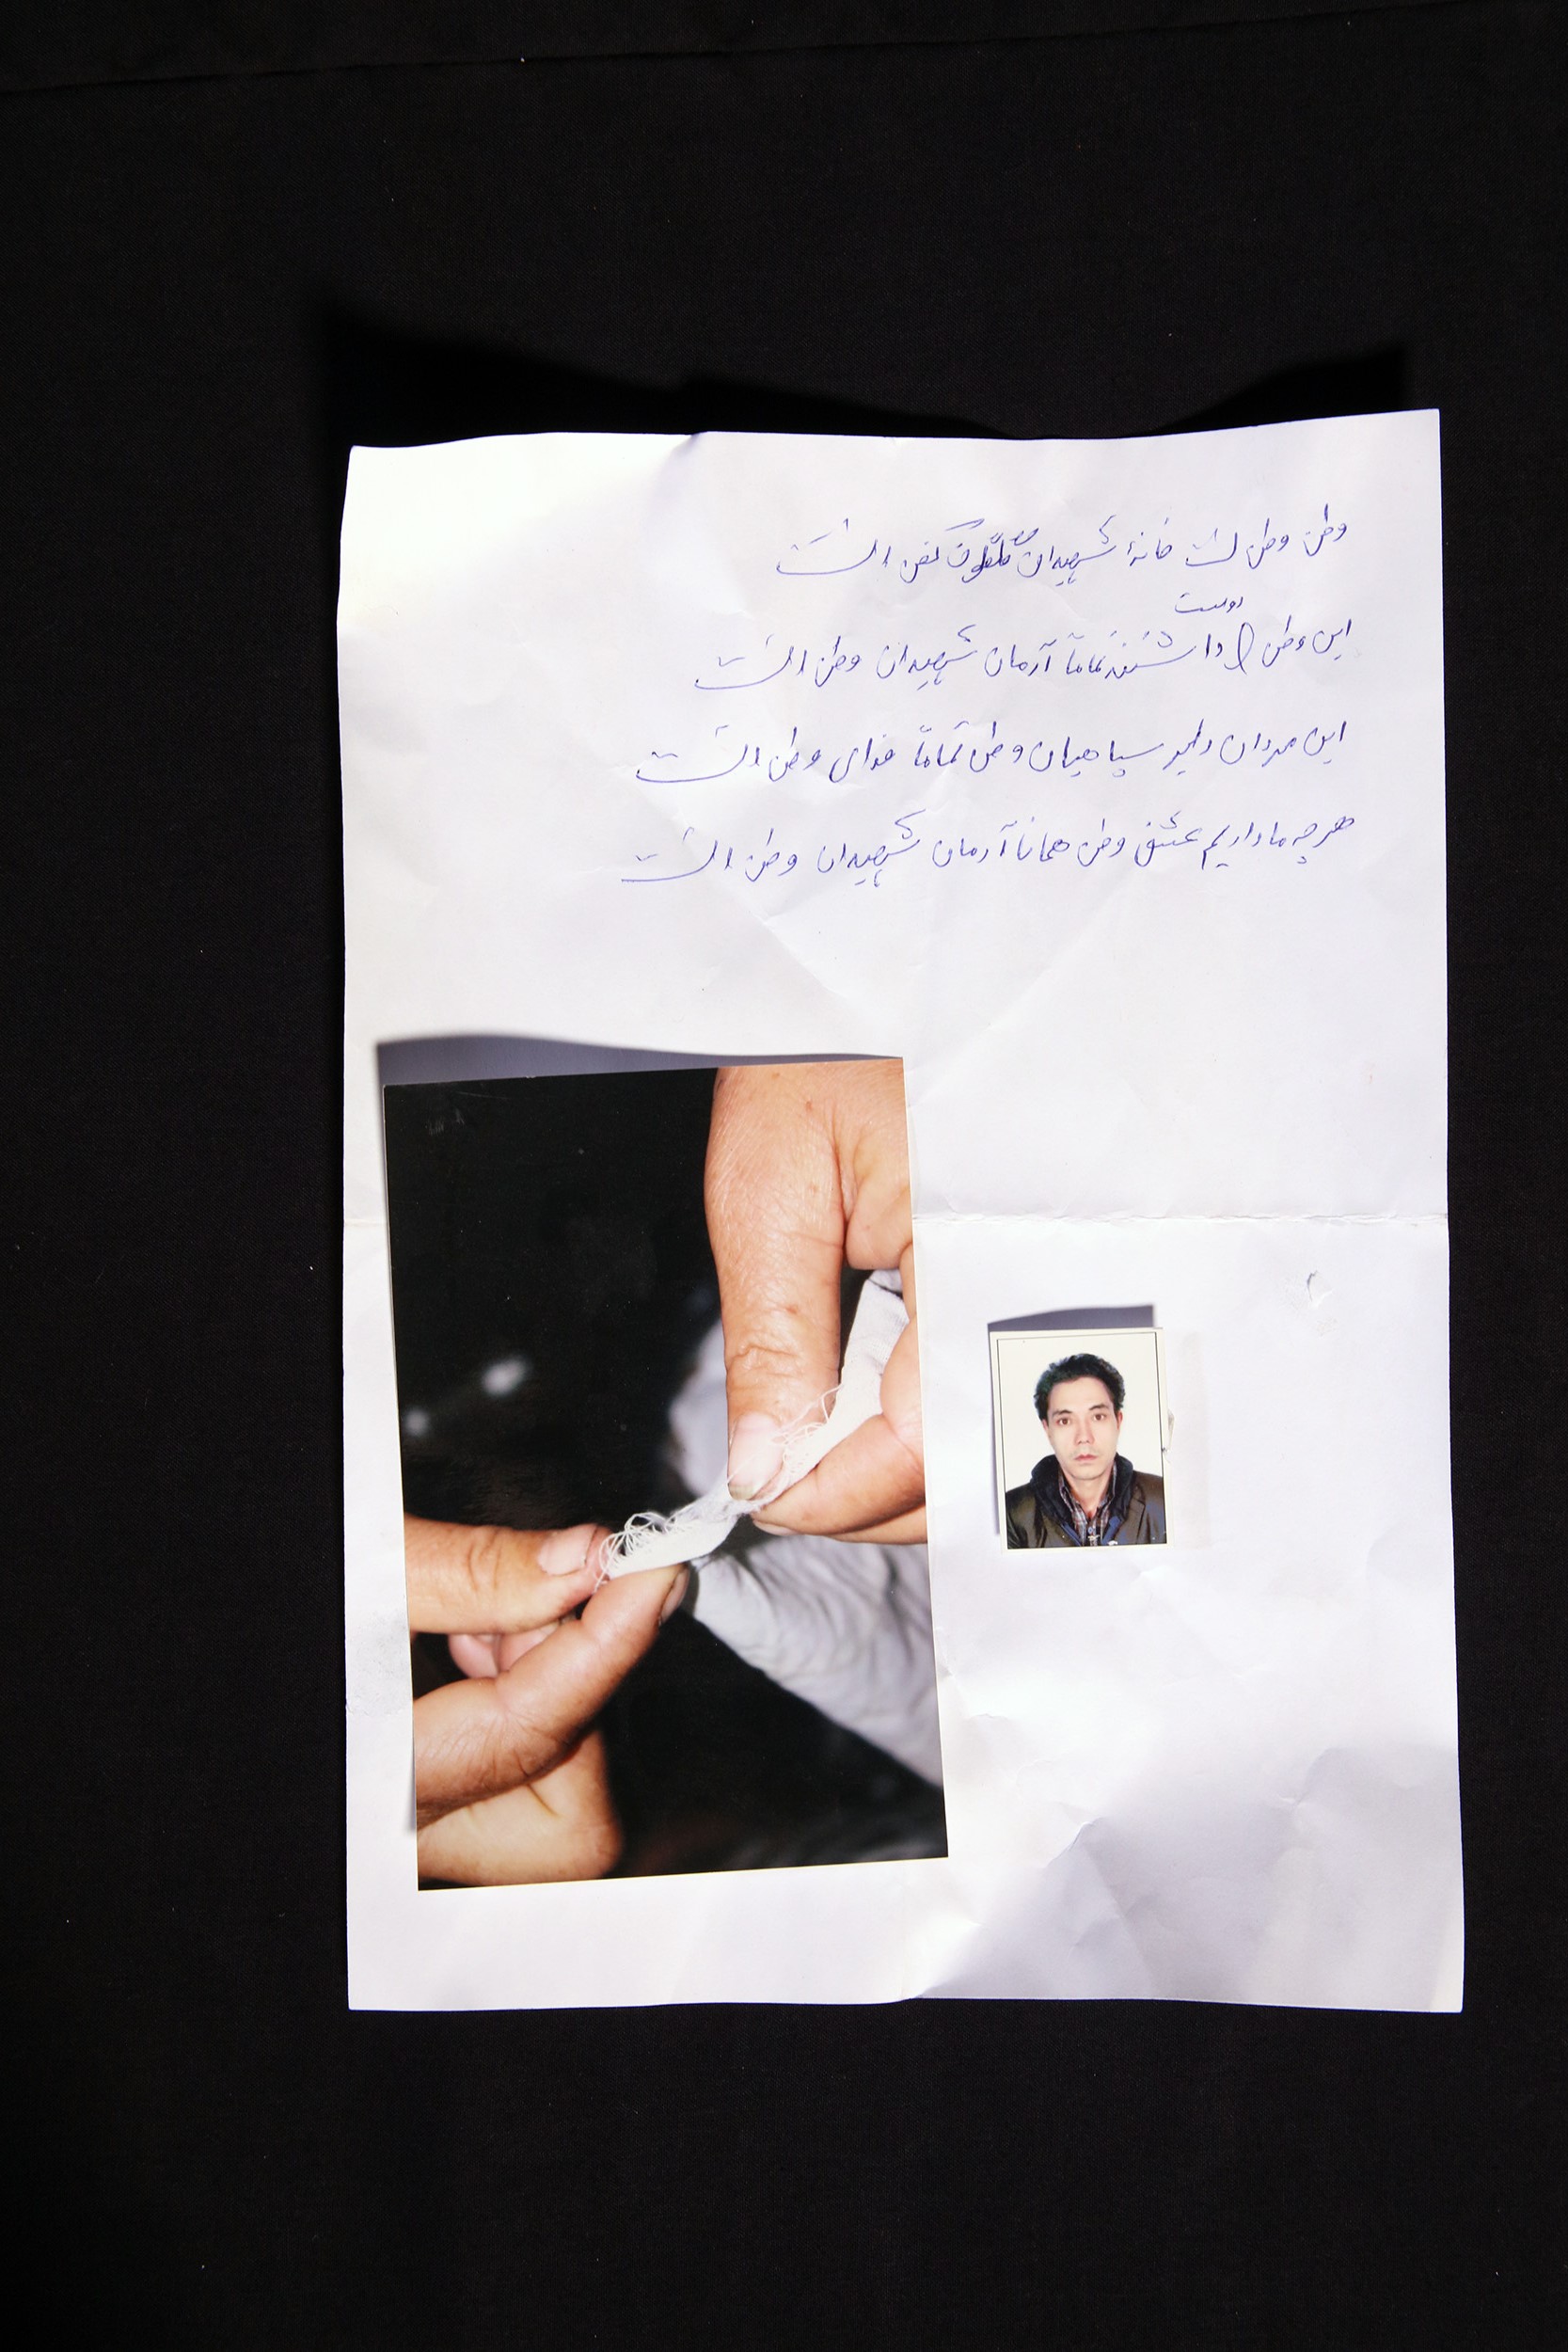 وطن وطن است خانهٔ شهیدان گلگون کفن است
این وطن را دوست داشتند تماماً آرمان شهیدان وطن است
این مردان دلیر سپاهیان وطن تماماً فدای وطن است
هر چه ما داریم عشق وطن همانا آرمان شهیدان وطن است